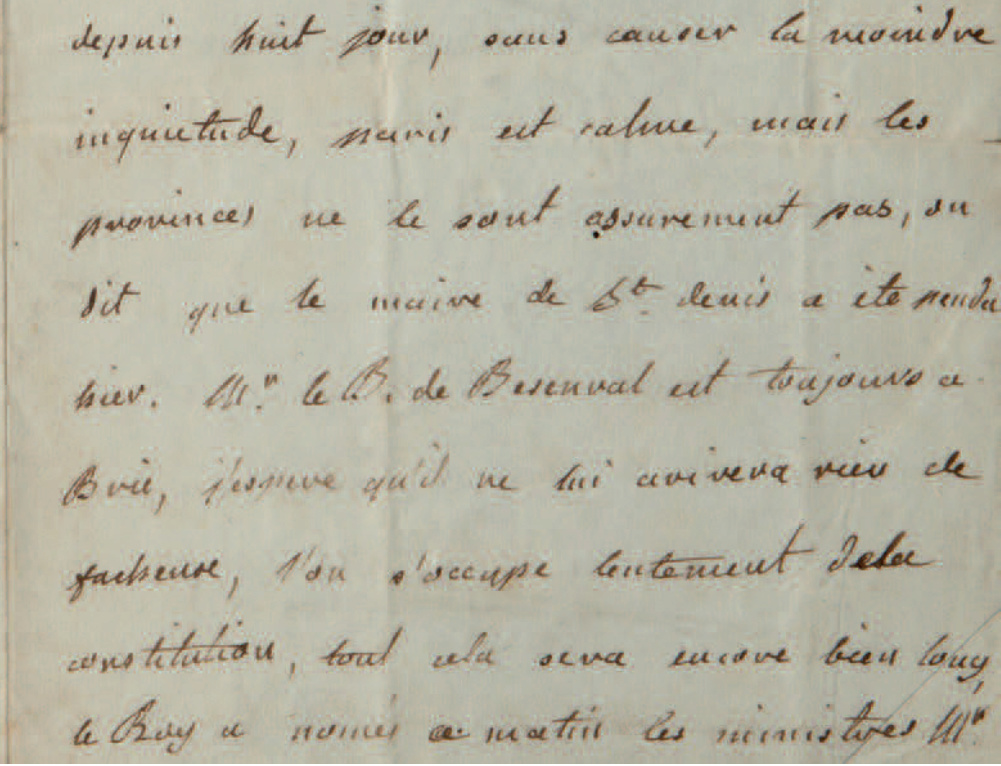 depuis huit jour, sans causer la moindre
inquietude, paris est calme, mais les
provinces ne le sont assurement pas, on
dit que le maire de St. denis a ete pendu
hier. Mr. le B. de Besenval est toujours a
Brie, j'espere qu'il ne lui arivera rien de
facheuse, l'on s'occupe lentement dela
constitution, tout cela sera encore bien long,
le Roy a només ce matin les ministres Mr.